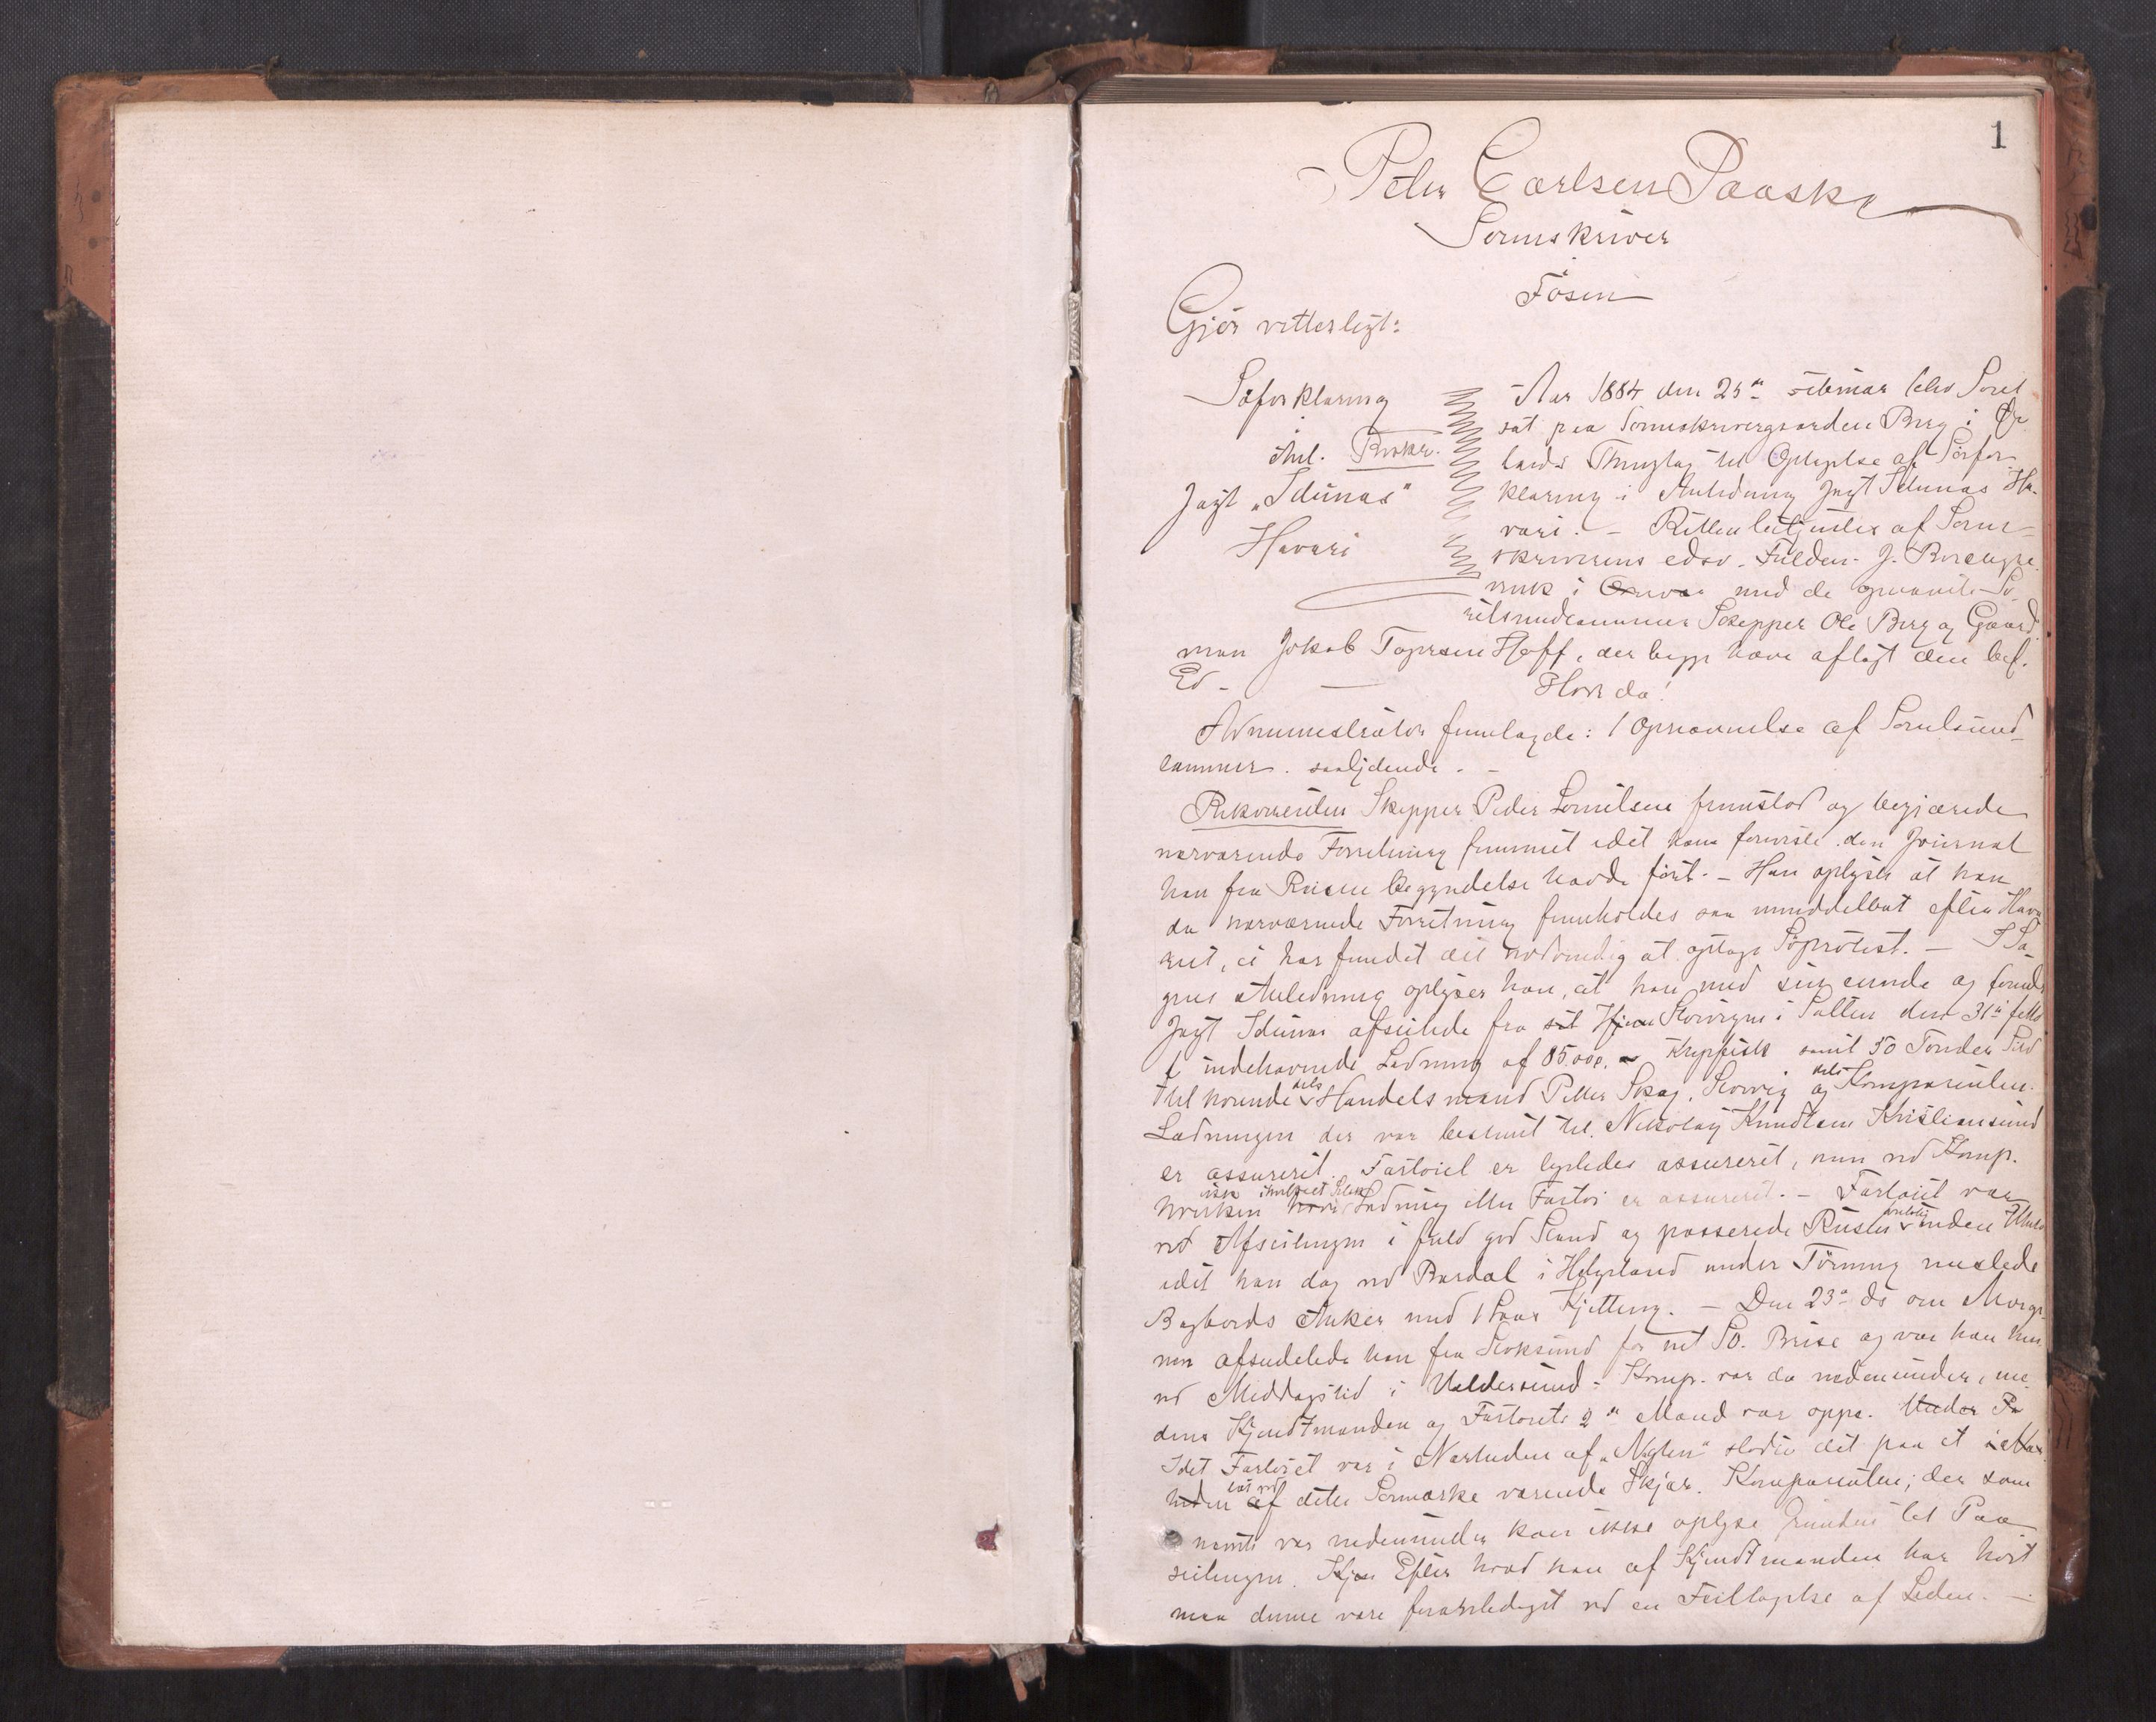 1
Peter Carlsen Paaske
Sorenskriver
Fosen
Gjør vitterligt:
Søforklaring
Anl. Brosker.
Jagt „Idunas"
Havari
Aar 1884 den 25de Februar blev Søret
sat paa Sorenskrivergaarden Berg i Ør
lands Thinglag til Optagelse af Søfor
klaring i Anledning Jagt Idunas Ha-
vari. - Retten betjentes af Soren-
skriverens edsv. Fuldm. J. Borchgre
vink i med de opnævnte Sø-
retsmedlemmer Skipper Ole Berg og Gaard
man Jakob Hoff, der begge have aflagt den bef.
Ed - Hvor da!
Administrator fremlagde: 1 Opnævnelse af Søretsmed
lemmer. saalydende. -
Rekvirenten Skipper Peder fremstod og begjærede
nærværende Forretning fremmet idet han foreviste den Journal
han fra Reisens Begyndelse havde ført. - Han oplyste at han
da nærværende Forretning fremholdes saa umiddelbart efter Hava
riet, ei har fundet det nødvendig at optage Søprotest. - I Sa
gens Anledning oplyser han, at han med sin eiende og førende
Jagt Idunas afseilede fra sit Hjem i Salten den 31te f
indehavende Ladning af 85.000. Klipfisk samt 50 Tønder Sild
tilhørende dels Handelsmand Petter Skag, og dels Komparenten.
Ladningen der var bestemt til Nikolay Knudtzon Kristiansund
er assureret. Fartøiet er ligeledes assureret, men ved Komp.
hvorken Ladning eller Fartøi er assureret. - Fartøiet var
ved Afseilingen i fuld god Stand og passerede Reisen inden Uheld
idet han dog ved Bardal i Helgeland under Tørning mistede
Bagbords Anker med 1 Kjetting. - Den 23de ds om Morge
nen afseilede han fra Stoksund for let SO. Brise og var han hen
ved Middagstid i Valdersund - Komp. var da nedenunder, me
dens Kjendtmanden og Fartøiets 2den Mand var oppe.
Idet Fartøiet var i Nærheden af „Nyglen" stødte det paa et
af dette Sømærke værende Skjær. Komparenten, der som
nævnt var nedenunder kan ikke oplyse Grunden til Paa
seilingen. Efter hvad han af Kjendtmanden har hørt
maa denne være foranlediget ved en Feiltagelse af Leden. -